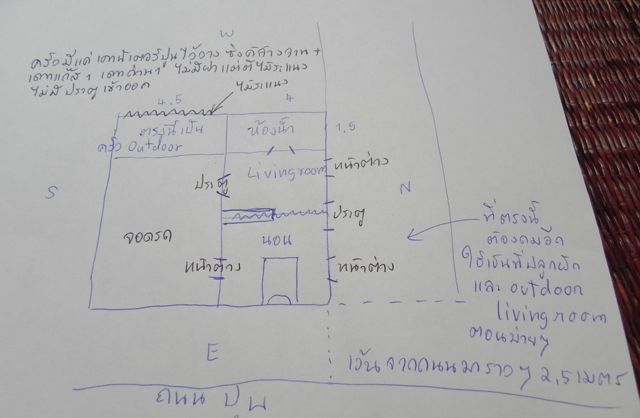 W
ครัวมีแค่ เคาน์เตอร์ปูน ไว้วาง ซิงค์ล้างจาน +
เตาแก๊ส 1 เตาถ่าน 1 ไม่มีฝา แต่ตีไม้ระแนง
ไม่มีประตูเข้าออก
ไม้ระแนง
4.5
4
ตรงนี้เป็น
ครัว Outdoor
ห้องน้ำ
1.5
Living room
หน้าต่าง
S
ประตู
N
ประตู
ที่ตรงนี้
จอดรถ
นอน
หน้าต่าง
หน้าต่าง
ต้องถมอีก
ใช้เป็นที่ปลูกผัก
และ outdoor
living room
ตอนบ่ายๆ
E
เว้นจากถนนมาราวๆ 2.5 เมตร
ถนน ปูน